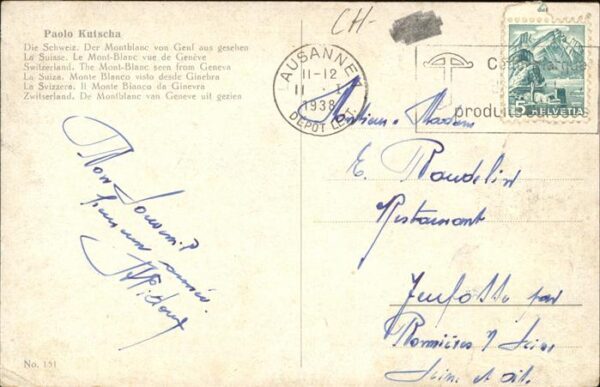 Paolo Kutscha
Die Schweiz. Der Montblanc von Genf aus gesehen
La Suisse. Le Mont-Blanc vue de Genève
Switzerland. The Mont-Blanc seen from Geneva
La Suiza. Monte Bianco visto desde Ginebra
La Svizzera. Il Monte Bianco da Ginevra
Zwitserland. De Montblanc van Geneve uit gezien
CH-
LAUSANNE
11-12
1938
DÉPOT LET
5 HELVETIA
produits suisses
Monsieur Madame
E. Baudelin
Restaurant
par
Seine et
Bon Souvenir
No. 151